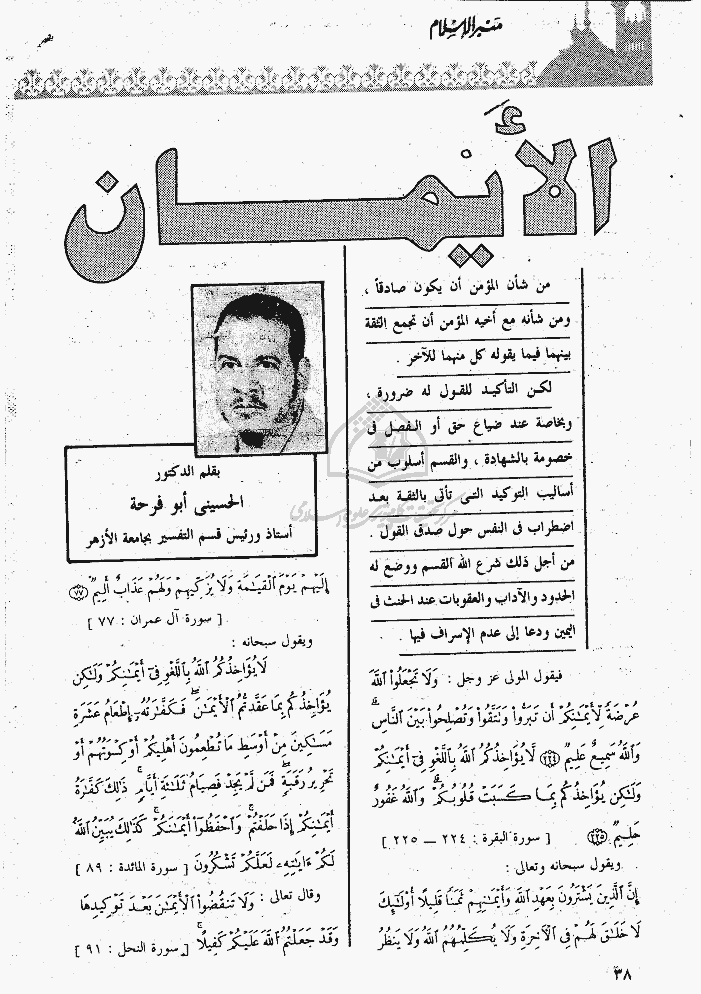 منبر الإسلام
الأيمان
من شأن المؤمن أن يكون صادقاً ،
ومن شأنه مع أخيه المؤمن أن تجمع الثقة
بينهما فيما يقوله كل منهما للآخر .
لكن التأكيد للقول له ضرورة ،
وبخاصة عند ضياع حق أو الفصل فى
خصومة بالشهادة ، والقسم أسلوب من
أساليب التوكيد التى تأتى بالثقة بعد
اضطراب فى النفس حول صدق القول .
من أجل ذلك شرع الله القسم ووضع له
الحدود والآداب والعقوبات عند الحنث فى
اليمين ودعا إلى عدم الإسراف فيها .
فيقول المولى عز وجل : وَلَا تَجْعَلُوا۟ ٱللَّهَ
عُرْضَةً لِّأَيْمَـٰنِكُمْ أَن تَبَرُّوا۟ وَتَتَّقُوا۟ وَتُصْلِحُوا۟ بَيْنَ ٱلنَّاسِ ۗ
وَٱللَّهُ سَمِيعٌ عَلِيمٌ ﴿٢٢٤﴾ لَّا يُؤَاخِذُكُمُ ٱللَّهُ بِٱللَّغْوِ فِىٓ أَيْمَـٰنِكُمْ
وَلَـٰكِن يُؤَاخِذُكُم بِمَا كَسَبَتْ قُلُوبُكُمْ ۗ وَٱللَّهُ غَفُورٌ
حَلِيمٌ ﴿٢٢٥﴾ [ سورة البقرة : ٢٢٤ ــ ٢٢٥ ]
ويقول سبحانه وتعالى :
إِنَّ ٱلَّذِينَ يَشْتَرُونَ بِعَهْدِ ٱللَّهِ وَأَيْمَـٰنِهِمْ ثَمَنًا قَلِيلًا أُو۟لَـٰٓئِكَ
لَا خَلَـٰقَ لَهُمْ فِى ٱلْـَٔاخِرَةِ وَلَا يُكَلِّمُهُمُ ٱللَّهُ وَلَا يَنظُرُ
بقلم الدكتور
الحسينى أبو فرحة
أستاذ ورئيس قسم التفسير بجامعة الأزهر
إِلَيْهِمْ يَوْمَ ٱلْقِيَـٰمَةِ وَلَا يُزَكِّيهِمْ وَلَهُمْ عَذَابٌ أَلِيمٌ ﴿٧٧﴾
[ سورة آل عمران : ٧٧ ]
ويقول سبحانه :
لَا يُؤَاخِذُكُمُ ٱللَّهُ بِٱللَّغْوِ فِىٓ أَيْمَـٰنِكُمْ وَلَـٰكِن
يُؤَاخِذُكُم بِمَا عَقَّدتُّمُ ٱلْأَيْمَـٰنَ ۖ فَكَفَّـٰرَتُهُۥٓ إِطْعَامُ عَشَرَةِ
مَسَـٰكِينَ مِنْ أَوْسَطِ مَا تُطْعِمُونَ أَهْلِيكُمْ أَوْ كِسْوَتُهُمْ أَوْ
تَحْرِيرُ رَقَبَةٍ ۖ فَمَن لَّمْ يَجِدْ فَصِيَامُ ثَلَـٰثَةِ أَيَّامٍ ۚ ذَٰلِكَ كَفَّـٰرَةُ
أَيْمَـٰنِكُمْ إِذَا حَلَفْتُمْ ۚ وَٱحْفَظُوٓا۟ أَيْمَـٰنَكُمْ ۚ كَذَٰلِكَ يُبَيِّنُ ٱللَّهُ
لَكُمْ ءَايَـٰتِهِۦ لَعَلَّكُمْ تَشْكُرُونَ [ سورة المائدة : ٨٩ ]
وقال تعالى : وَلَا تَنقُضُوا۟ ٱلْأَيْمَـٰنَ بَعْدَ تَوْكِيدِهَا
وَقَدْ جَعَلْتُمُ ٱللَّهَ عَلَيْكُمْ كَفِيلًا ۚ [ سورة النحل : ٩١ ]
٣٨